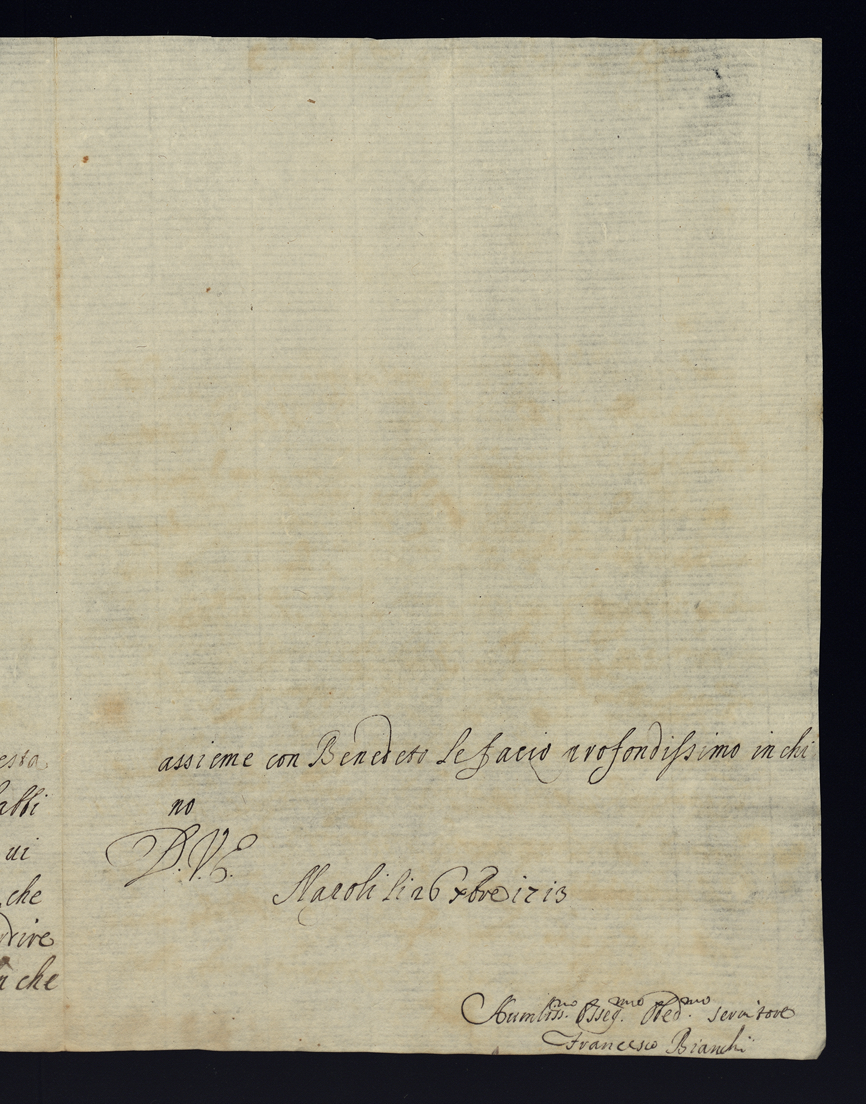 esta
abbi
ui
che
che
assieme con Benedeto le facio profondissimo inchi
no
D. V. E.
Napoli li 26 Xbre 1713
Humilis.mo Osseq.mo Obed.mo seruitore
Francesco Bianchi